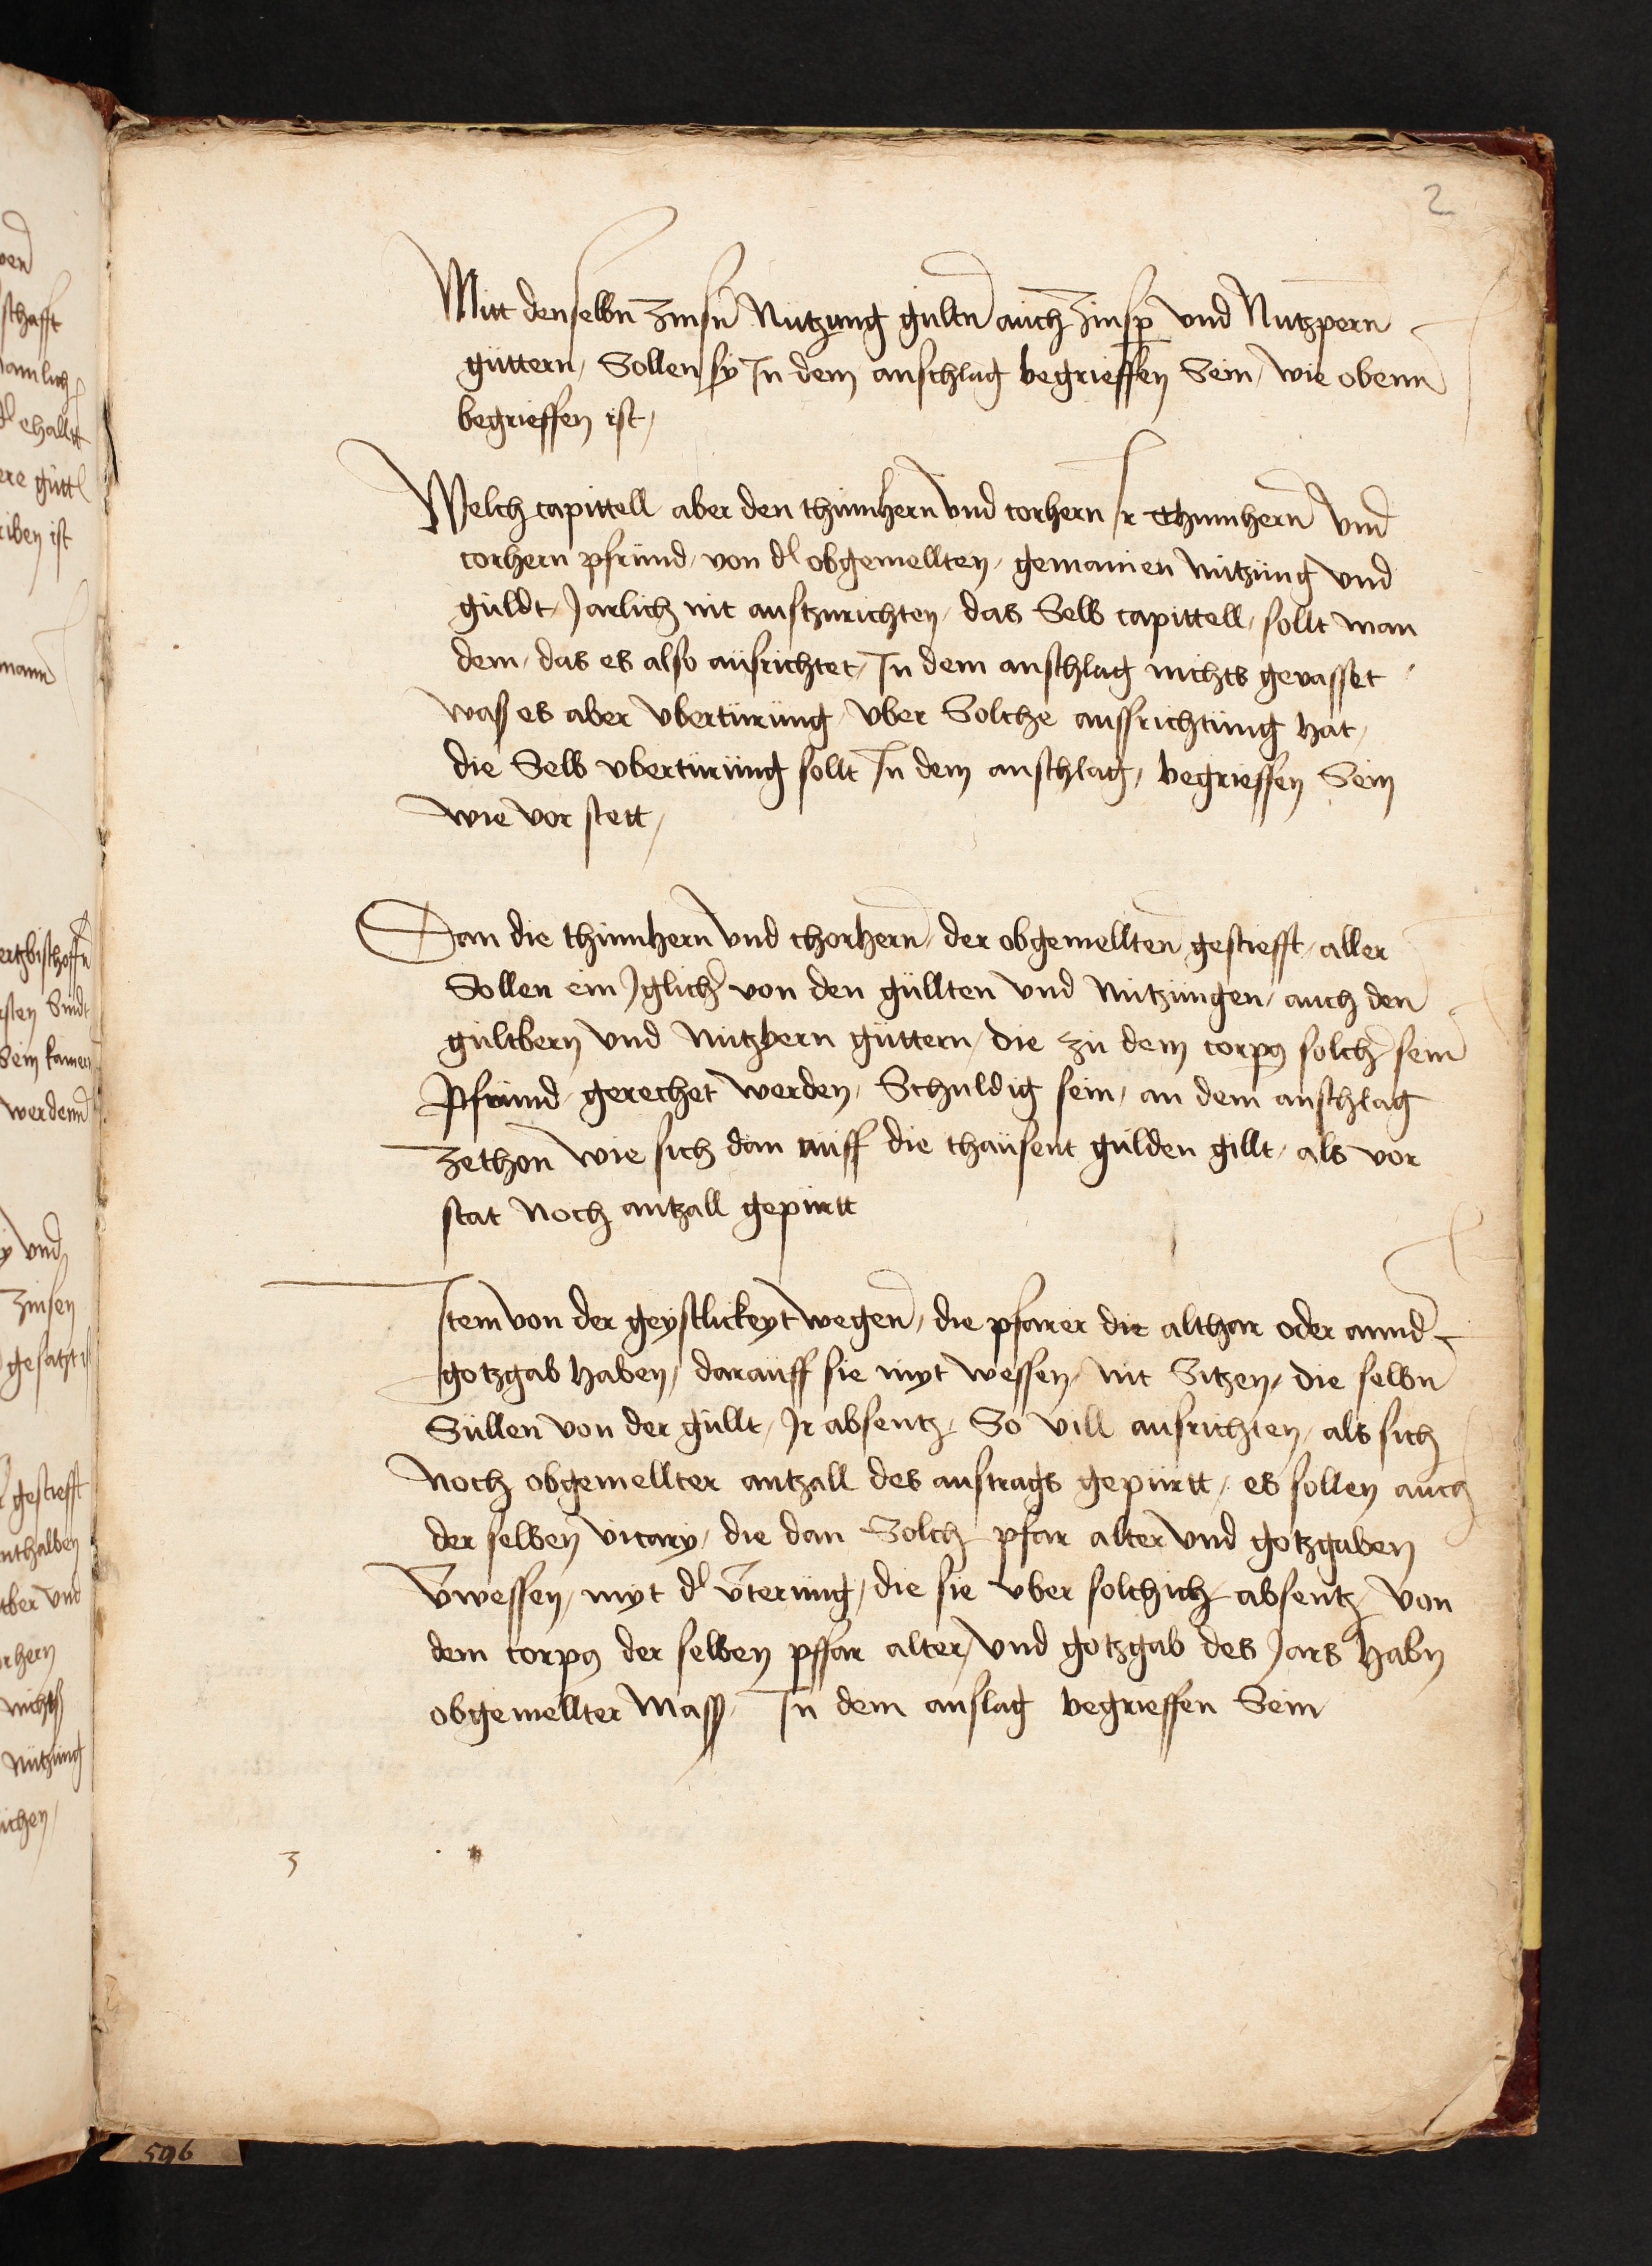 2
Mitt denselbn zinsn Nutzung gultn auch zinsp̄ vnd Nutzpern
güttern, Sollen sy In dem anschlag begrieffen Sein, wie obenn
begrieffen ist,
Welch capittell aber den thumhern vnd corhern Ir Thumhern vnd
corhern pfründ, von d' obgemellten, gemainen nutzüng vnd
güldt, Jarlich nit austzurichten, das Selb capittell, sollt man
dem, das es also aüsrichtet, In dem anschlag nichts gevasset
wass es aber vbertürüng, vber Solche aussrichtüng hat,
die Selb vbertürüng sollt In dem anschlag, begrieffen Sein
wie vor stett,
Dan die thumhern vnd chorhern, der obgemellten gestiefft, aller
Sollen ein Jglicher von den güllten vnd nützüngen, auch den
gültbern vnd nützbern güttern, die zü dem corpus solcher sein
Pfründ gerechet werden, Schuldig sein, an dem anschlag
zethon wie sich dan aüff die thaüsent gülden gillt, als vor
stat Noch antzall gepürtt
Item von der geystlickeyt wegen, die pfarer die althar oder annd'
gotzgab haben, daraüff sie myt wessen, nit Sitzen, die selbn
Süllen von der güllt, Ir absentz, So vill ausrichten, als sich
Noch obgemellter antzall des austrags gepürtt, es sollen auch
der selben vicary, die dan Solch pfar alter vnd gotzgaben
v̄wessen, myt d' v̄terüng, die sie vber solchich absentz, von
dem corpus der selben pffar alter, vnd gotzgab des Jars habn
obgemellter Mass, In dem anslag begrieffen Sein
3
596